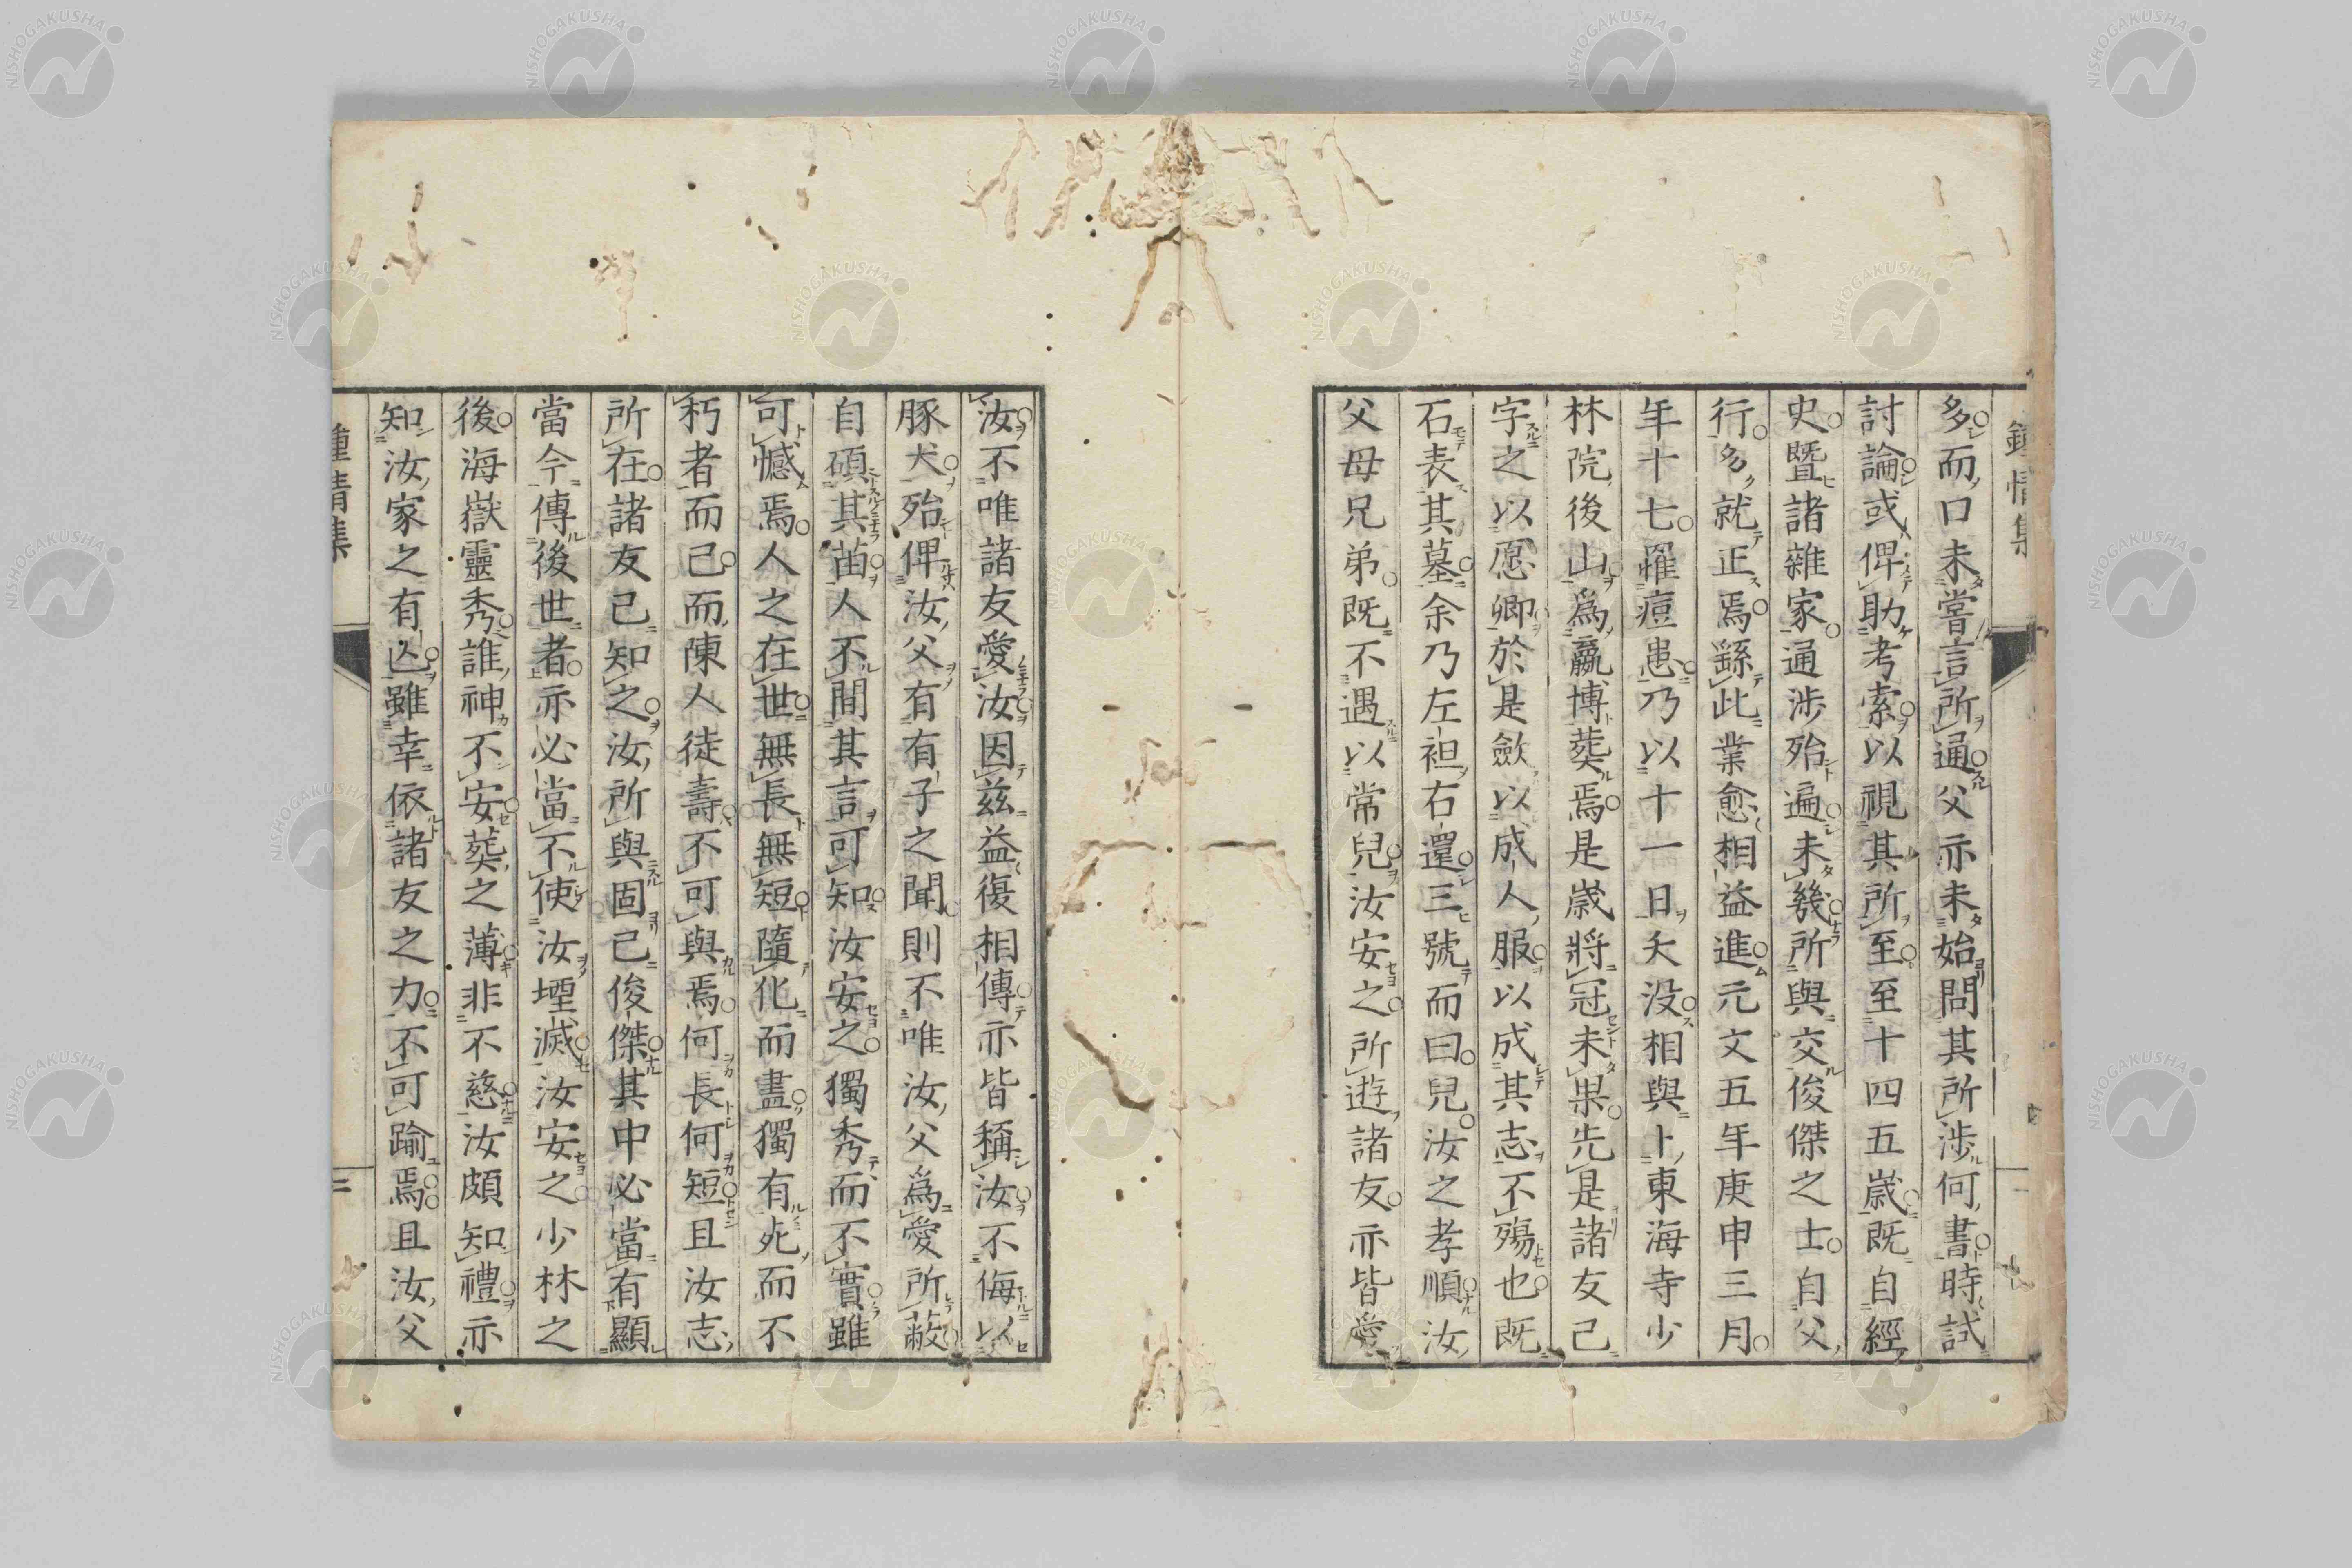 鍾情集
多而口未嘗言所通父亦未始問其所渉何書時試
討論或俾助考索以視其所至至十四五歳既自經
史曁諸雜家通渉殆遍未幾所與交俊傑之士自父
行多就正焉繇此業愈相益進元文五年庚申三月
年十七罹痘患乃以十一日夭没相與卜東海寺少
林院後山爲嬴博葬焉是歳將冠未果先是諸友已
字之以愿卿於是歛以成人服以成其志不殤也既
石表其墓余乃左袒右還三號而曰兒汝之孝順汝
父母兄弟既不遇以常兒汝安之所遊諸友亦皆愛
汝不唯諸友愛汝因茲益復相傳亦皆稱汝不侮以
豚犬殆俾汝父有有子之聞則不唯汝父爲愛所蔽
自碩其苗人不間其言可知汝安之獨秀而不實雖
可憾焉人之在世無長無短隨化而盡獨有死而不
朽者而已而陳人徒壽不可與焉何長何短且汝志
所在諸友已知之汝所與固已俊傑其中必當有顯
當今傳後世者亦必當不使汝堙滅汝安之少林之
後海嶽靈秀誰神不安葬之薄非不慈汝頗知禮亦
知汝家之有亾雖幸依諸友之力不可踰焉且汝父
鍾情集
二
NISHOGAKUSHA